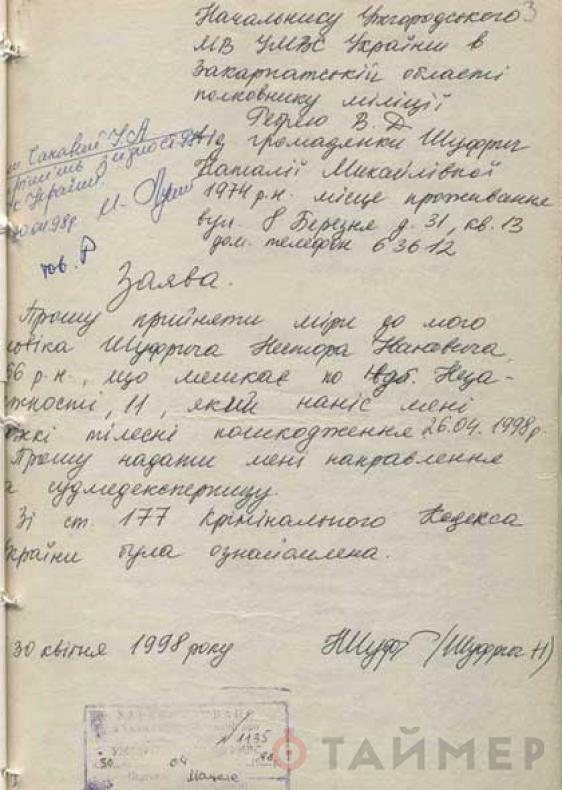 3
Начальнику Ужгородського
МВ УМВС України в
Закарпатській області
полковнику міліції
В. Д
Від громадянки Шуфрич
Наталії Михайлівної
1974 р.н. місце проживання
вул. 8 Березня д. 31, кв. 13
дом. телефон 63612
У.А
України.
тов.
Заява.
Прошу прийняти міри до мого
ловіка Шуфрича Нестора Івановича,
66 р.н., що мешкає по наб. Неза-
жності, 11, який наніс мені
яжкі тілесні пошкодження 26.04.1998р.
Прошу надати мені направлення
а судмедекспертизу.
Зі ст. 177 Крімінального Кодекса
країни була ознайомлена.
30 квітня 1998 року НШуф /Шуфрич Н/
N 1135
30 04 98
ТАЙМЕР